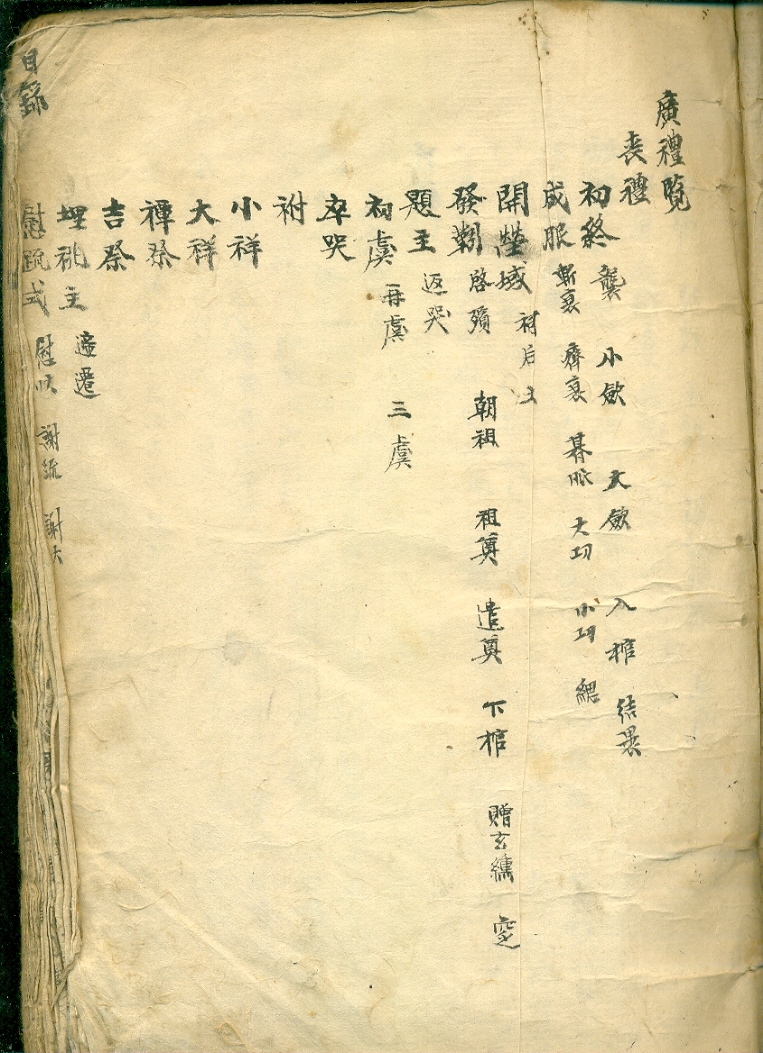 廣禮覽
喪禮
初終 襲 小斂 大斂 入棺 結裹
成服 斬衰 齊衰 朞服 大功 小功 緦
開塋域 祠后土
發靷 啓殯 朝祖 祖奠 遣奠 下棺 贈玄纁
題主 返哭
初虞 再虞 三虞
卒哭
祔
小祥
大祥
禫祭
吉祭
埋祧主 遞遷
慰疏式 慰狀 謝疏 謝
目錄